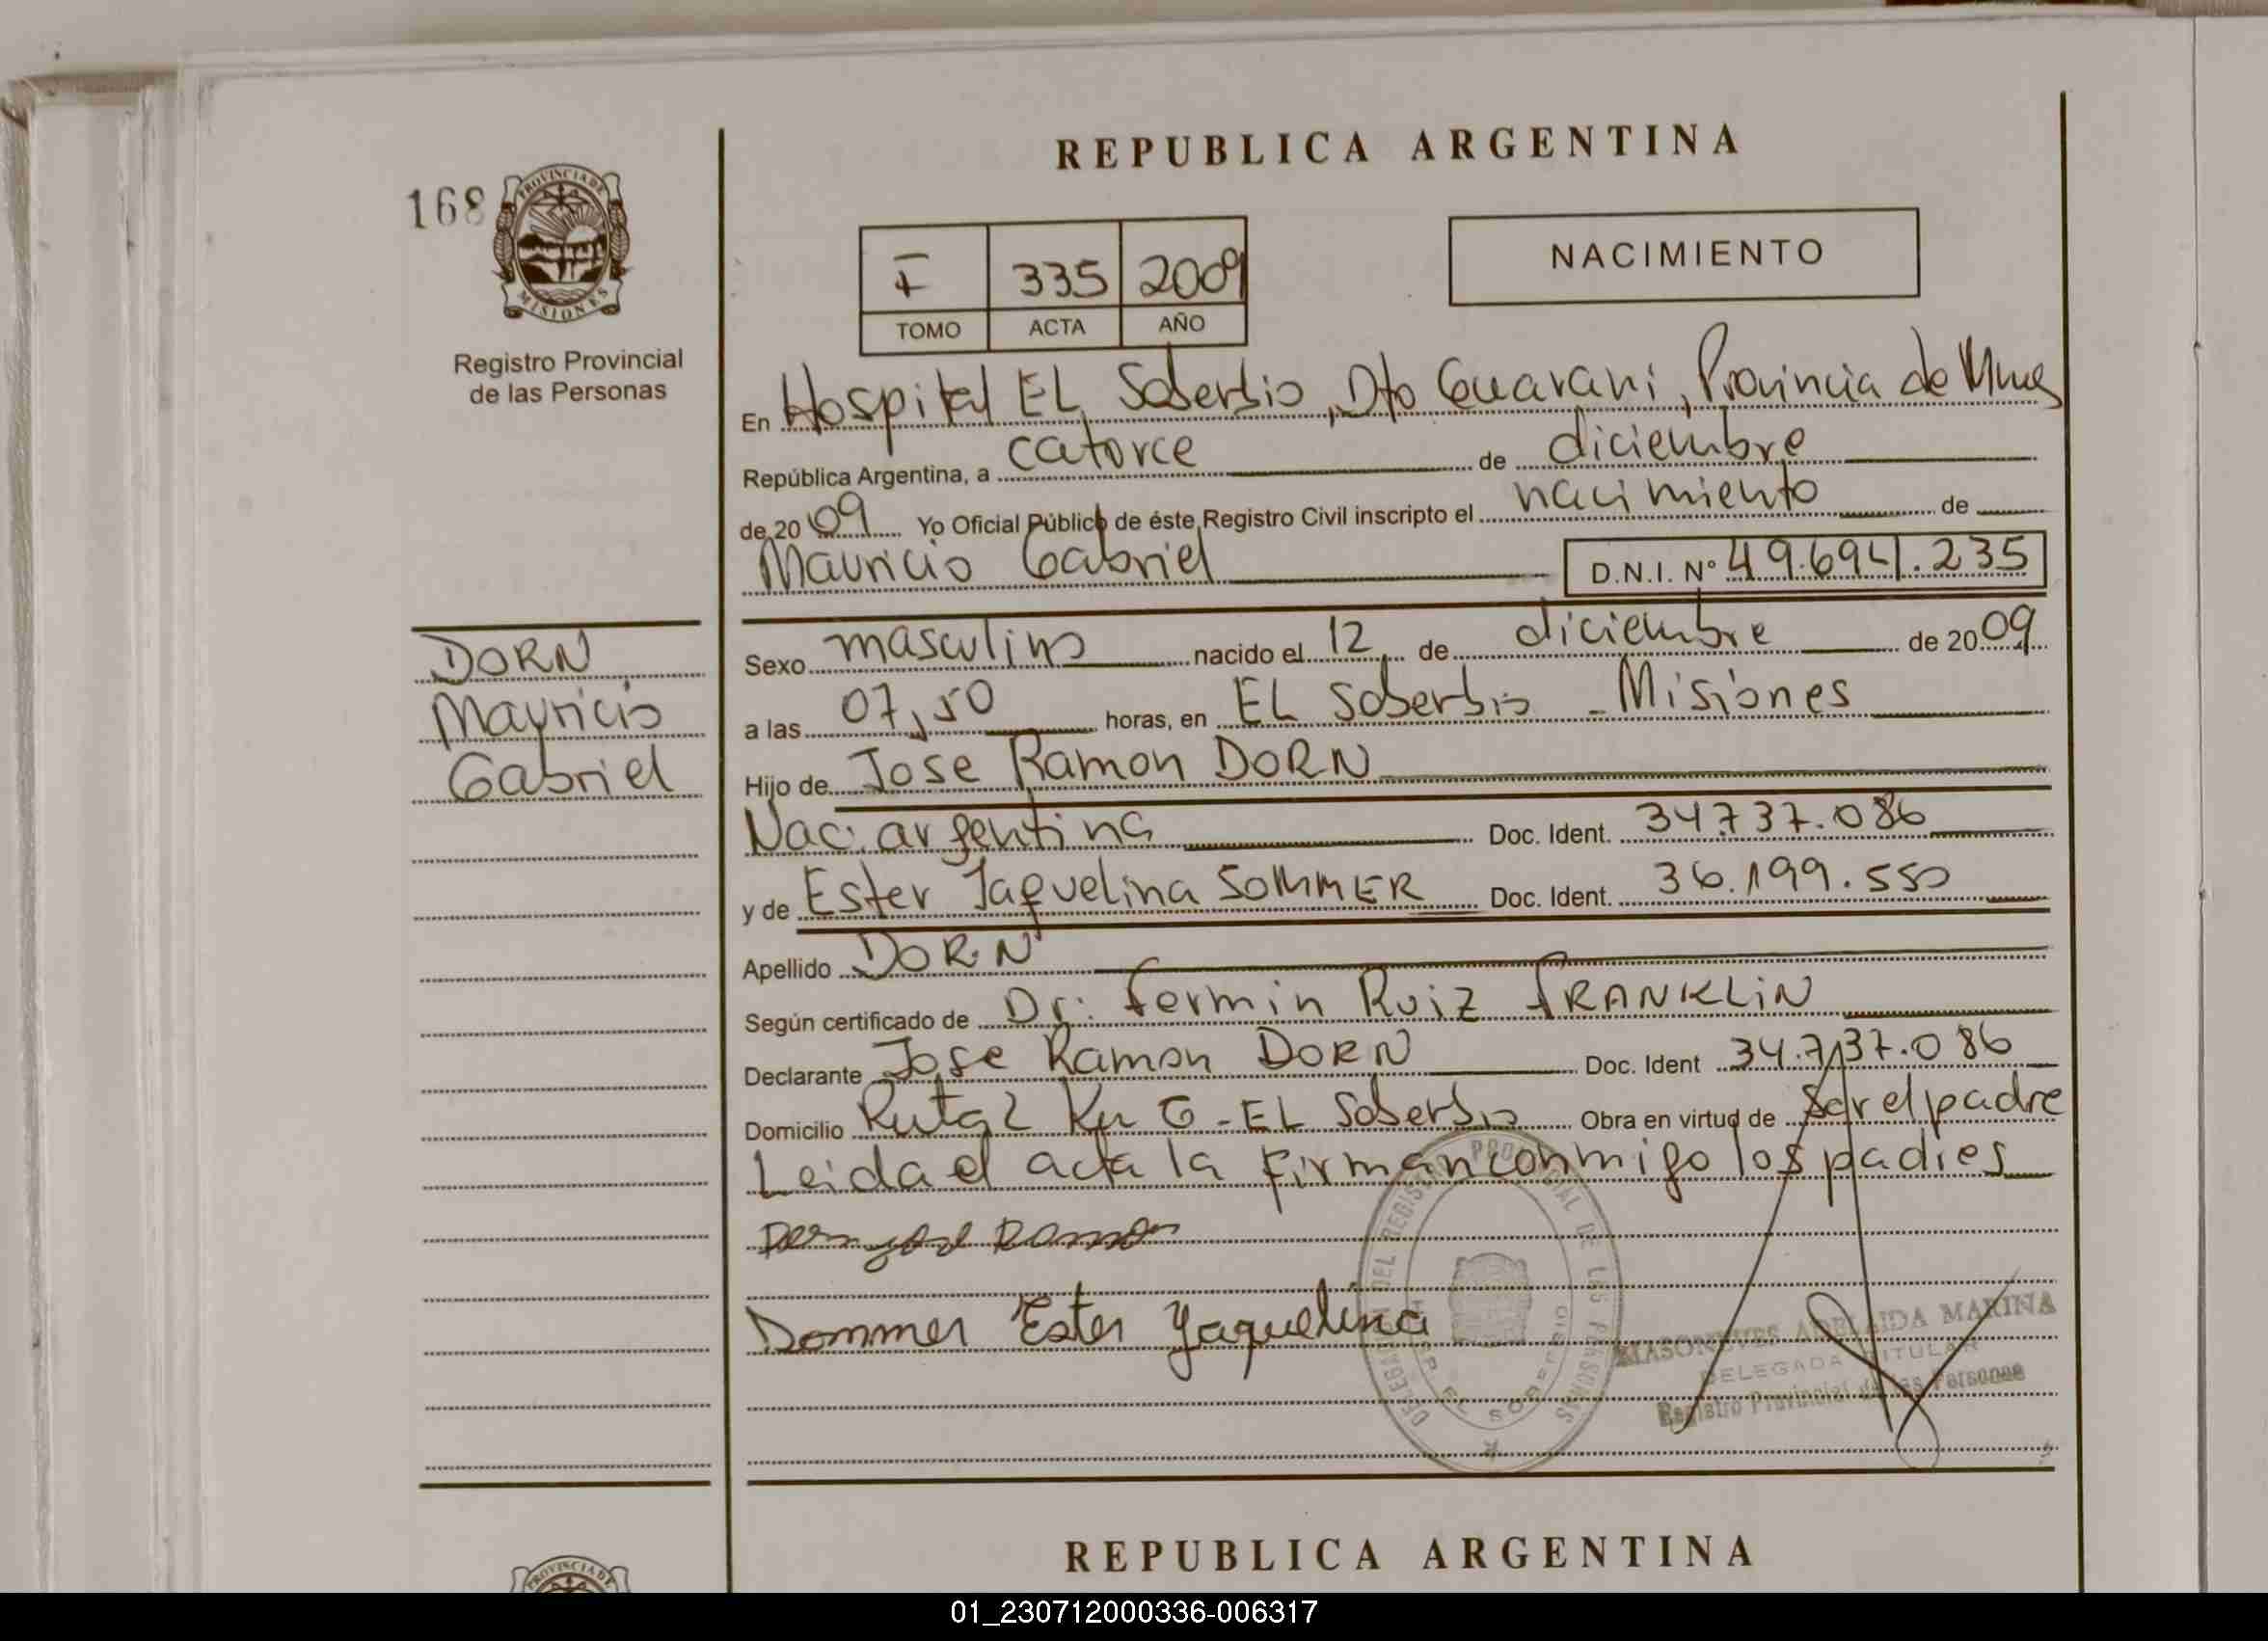 REPUBLICA ARGENTINA
168
PROVINCIA DE
MISIONES
Registro Provincial
de las Personas
I 335 2009
TOMO ACTA AÑO
NACIMIENTO
En Hospital EL Soberbio, Dto Guarani, Provincia de Mnes
República Argentina, a catorce de diciembre
de 2009 Yo Oficial Público de éste Registro Civil inscripto el nacimiento de
Mauricio Gabriel D.N.I. Nº 49.694.235
DORN
Mauricio
Gabriel
Sexo masculino nacido el 12 de diciembre de 2009
a las 07,50 horas, en EL Soberbio - Misiones
Hijo de Jose Ramon DORN
Nac. argentina Doc. Ident. 34.737.086
y de Ester Jaquelina SOMMER Doc. Ident. 36.199.550
Apellido DORN
Según certificado de Dr: Fermin Ruiz FRANKLIN
Declarante Jose Ramon DORN Doc. Ident 34.737.086
Domicilio Ruta 2 Km 6 - EL Soberbio Obra en virtud de Ser el padre
Leida el acta la firman conmigo los padres
Dorn José Ramon
Sommer Ester Yaquelina
DELEGACION DEL REGISTRO PROVINCIAL DE LAS PERSONAS
EL SOBERBIO
ADELAIDA MARINA
DELEGADA TITULAR
Registro Provincial de las Personas
REPUBLICA ARGENTINA
PROVINCIA DE
01_230712000336-006317